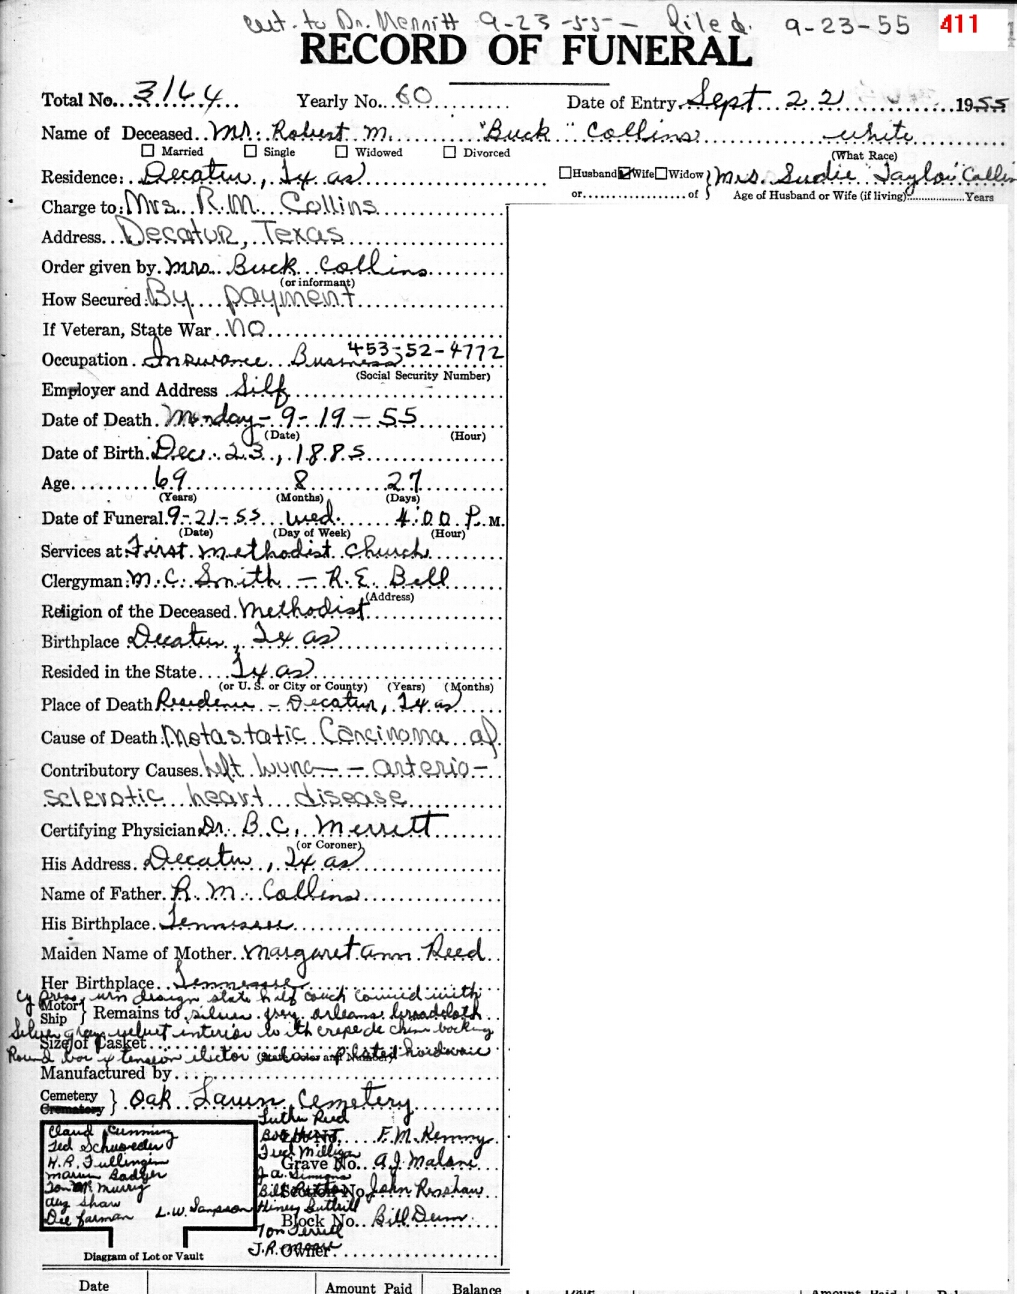 cert. to Dr. Merritt 9-23-55 — filed 9-23-55 411
RECORD OF FUNERAL
Total No. 3164 Yearly No. 60 Date of Entry Sept 22 1955
Name of Deceased Mr. Robert M. "Buck" Collins white
☐ Married ☐ Single ☐ Widowed ☐ Divorced (What Race)
Residence: Decatur, Texas ☐Husband ☑Wife ☐Widow } Mrs. Sudie Taylor Collins
or of Age of Husband or Wife (if living) Years
Charge to: Mrs. R.M. Collins
Address Decatur, Texas
Order given by Mrs. Buck Collins
(or informant)
How Secured By payment
If Veteran, State War no
Occupation Insurance Business 453-52-4772
(Social Security Number)
Employer and Address Self
Date of Death Monday - 9-19-55
(Date) (Hour)
Date of Birth Dec. 23, 1885
Age 69 8 27
(Years) (Months) (Days)
Date of Funeral 9-21-55 Wed. 4:00 P. M.
(Date) (Day of Week) (Hour)
Services at First Methodist Church
Clergyman M.C. Smith - R.E. Bell
(Address)
Religion of the Deceased Methodist
Birthplace Decatur, Texas
Resided in the State Texas
(or U. S. or City or County) (Years) (Months)
Place of Death Residence - Decatur, Texas
Cause of Death Metastatic Carcinoma of
Contributory Causes left lung - arterio-
sclerotic heart disease
Certifying Physician Dr. B.C. Merritt
(or Coroner)
His Address Decatur, Texas
Name of Father R.M. Collins
His Birthplace Tennessee
Maiden Name of Mother Margaret Ann Reed
Her Birthplace Tennessee
Cypress urn design state half couch covered with
Motor Ship } Remains to silver grey orleans broadcloth
Silver gray velvet interior with crepe de chine
Size of Casket
Round hardware
Manufactured by
Cemetery Crematory } Oak Lawn Cemetery
Claud Cunning Luther Reed
Ted Schroeder Bob Hunt F.M. Kenny
H.R. Fullingim Fred Milligan
Marvin Badger Grave No. A.J. Malone
Tom Murry J.A. Simmons
Section No. John Renshaw
Aug Shaw
Dee Farman L.W. Sampson Block No. Bill Dunn
Tom Terrell
J.R. Moore Owner
Diagram of Lot or Vault
Date Amount Paid Balance